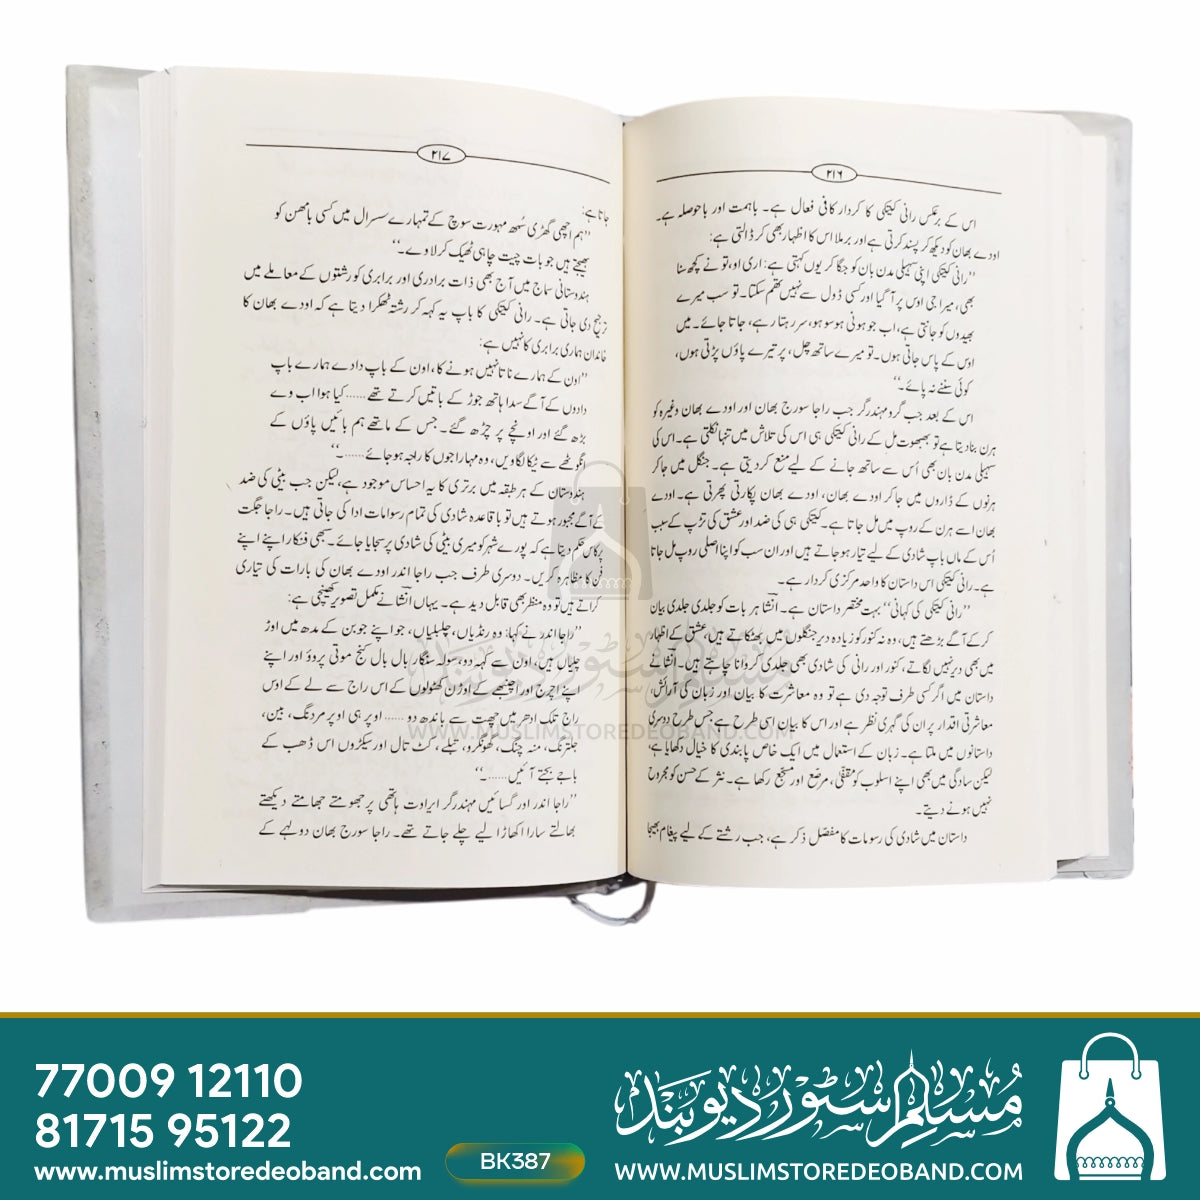 ۲۱۶
اس کے برعکس رانی کیتکی کا کردار کافی فعال ہے۔ باہمت اور باحوصلہ ہے۔
اودے بھان کو دیکھ کر پسند کرتی ہے اور برملا اس کا اظہار بھی کر ڈالتی ہے:
’’رانی کیتکی اپنی سہیلی مدن بان کو جگا کر یوں کہتی ہے: اری او، تو نے کچھ سنا
بھی، میرا جی اوس پر آ گیا اور کسی ڈول سے نہیں تھم سکتا۔ تو سب میرے
بھیدوں کو جانتی ہے، اب جو ہونی ہو سو ہو، سر رہتا رہے، جاتا جائے۔ میں
اوس کے پاس جاتی ہوں۔ تو میرے ساتھ چل، پر تیرے پاؤں پڑتی ہوں،
کوئی سننے نہ پائے۔‘‘
اس کے بعد جب گرو مہندر گر جب راجا سورج بھان اور اودے بھان وغیرہ کو
ہرن بنا دیتا ہے تو بھبھوت مل کے رانی کیتکی ہی اس کی تلاش میں تنہا نکلتی ہے۔ اس کی
سہیلی مدن بان بھی اُس سے ساتھ جانے کے لیے منع کر دیتی ہے۔ جنگل میں جا کر
ہرنوں کے ڈاروں میں جا کر اودے بھان، اودے بھان پکارتی پھرتی ہے۔ اودے
بھان اسے ہرن کے روپ میں مل جاتا ہے۔ کیتکی ہی کی ضد اور عشق کی تڑپ کے سبب
اُس کے ماں باپ شادی کے لیے تیار ہو جاتے ہیں اور ان سب کو اپنا اصلی روپ مل جاتا
ہے۔ رانی کیتکی اس داستان کا واحد مرکزی کردار ہے۔
’’رانی کیتکی کی کہانی‘‘ بہت مختصر داستان ہے۔ انشاؔ ہر بات کو جلدی جلدی بیان
کر کے آگے بڑھتے ہیں، وہ نہ کنور کو زیادہ دیر جنگلوں میں بھٹکاتے ہیں، عشق کے اظہار
میں بھی دیر نہیں لگاتے، کنور اور رانی کی شادی بھی جلدی کروانا چاہتے ہیں۔ انشاؔ نے
داستان میں اگر کسی طرف توجہ دی ہے تو وہ معاشرت کا بیان اور زبان کی آرائش،
معاشرتی اقدار پر ان کی گہری نظر ہے اور اس کا بیان اسی طرح ہے جس طرح دوسری
داستانوں میں ملتا ہے۔ زبان کے استعمال میں ایک خاص پابندی کا خیال دکھایا ہے،
لیکن سادگی میں بھی اپنے اسلوب کو مقفّیٰ، مرصّع اور مسجّع رکھا ہے۔ نثر کے حسن کو مجروح
نہیں ہونے دیتے۔
داستان میں شادی کی رسومات کا مفصّل ذکر ہے، جب رشتے کے لیے پیغام بھیجا
۲۱۷
جاتا ہے:
’’ہم اچھی گھڑی سُبھ مہورت سوچ کے تمہارے سسرال میں کسی بامھن کو
بھیجتے ہیں جو بات چیت چاہی ٹھیک کر لاوے۔‘‘
ہندوستانی سماج میں آج بھی ذات برادری اور برابری کو رشتوں کے معاملے میں
ترجیح دی جاتی ہے۔ رانی کیتکی کا باپ یہ کہہ کر رشتہ ٹھکرا دیتا ہے کہ اودے بھان کا
خاندان ہماری برابری کا نہیں ہے:
’’اون کے ہمارے ناتا نہیں ہونے کا، اون کے باپ دادے ہمارے باپ
دادوں کے آگے سدا ہاتھ جوڑ کے باتیں کرتے تھے...... کیا ہوا اب وے
بڑھ گئے اور اونچے پر چڑھ گئے۔ جس کے ماتھے ہم بائیں پاؤں کے
انگوٹھے سے ٹیکا لگاویں، وہ مہاراجوں کا راجہ ہو جائے......۔‘‘
ہندوستان کے ہر طبقہ میں برتری کا یہ احساس موجود ہے، لیکن جب بیٹی کی ضد
کے آگے مجبور ہوتے ہیں تو باقاعدہ شادی کی تمام رسومات ادا کی جاتی ہیں۔ راجا جگت
پرکاس حکم دیتا ہے کہ پورے شہر کو میری بیٹی کی شادی پر سجایا جائے۔ سبھی فنکار اپنے اپنے
فن کا مظاہرہ کریں۔ دوسری طرف جب راجا اندر اودے بھان کی بارات کی تیاری
کراتے ہیں تو وہ منظر بھی قابل دید ہے۔ یہاں انشاؔ نے مکمل تصویر کھینچی ہے:
’’راجا اندر نے کہا: وہ رنڈیاں، چلبلیاں، جو اپنے جوبن کے مدھ میں اوڑ
چلیاں ہیں، اون سے کہہ دو، سولہ سنگار بال بال گنج موتی پروؤ اور اپنے
اپنے اچرج اور اچنبھے کے اوڑن کھٹولوں کے اس راج سے لے کے اوس
راج تلک ادھر میں چھت سے باندھ دو...... اوپر ہی اوپر مردنگ، بین،
جلترنگ، منہ چنگ، گھونگرو، تبلے، کٹ تال اور سیکڑوں اس ڈھب کے
باجے بجتے آئیں......۔‘‘
’’راجا اندر اور گسائیں مہندر گر ایراوت ہاتھی پر جھومتے جھامتے دیکھتے
بھالتے سارا اکھاڑا لیے چلے جاتے تھے۔ راجا سورج بھان دولہے کے
مسلم سٹور دیوبند
WWW.MUSLIMSTOREDEOBAND.COM
77009 12110
81715 95122
www.muslimstoredeoband.com
BK387
مسلم سٹور دیوبند
WWW.MUSLIMSTOREDEOBAND.COM